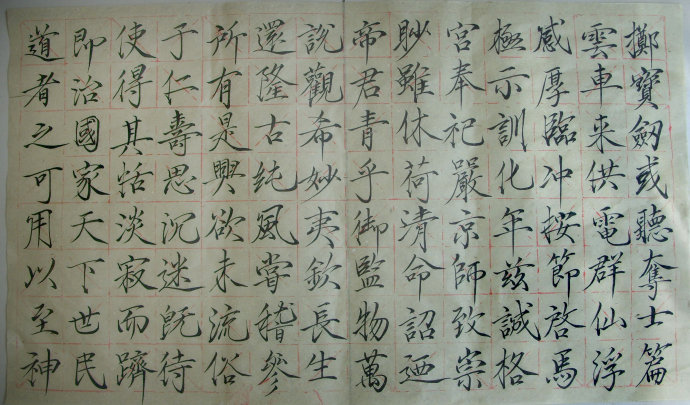 擲寶劒或聽奪士篇
雲車来供電群仙浮
感厚臨冲按節啓馬
極示訓化年兹誠格
宮奉祀嚴京師致崇
眇雖休荷靖命詔廼
帝君青乎御監物萬
説觀希妙夷欽長生
還隆古純風嘗稽參
所有是興欲未流俗
子仁壽思沉迷既待
使得其恬淡寂而躋
即治國家天下世民
道者之可用以至神